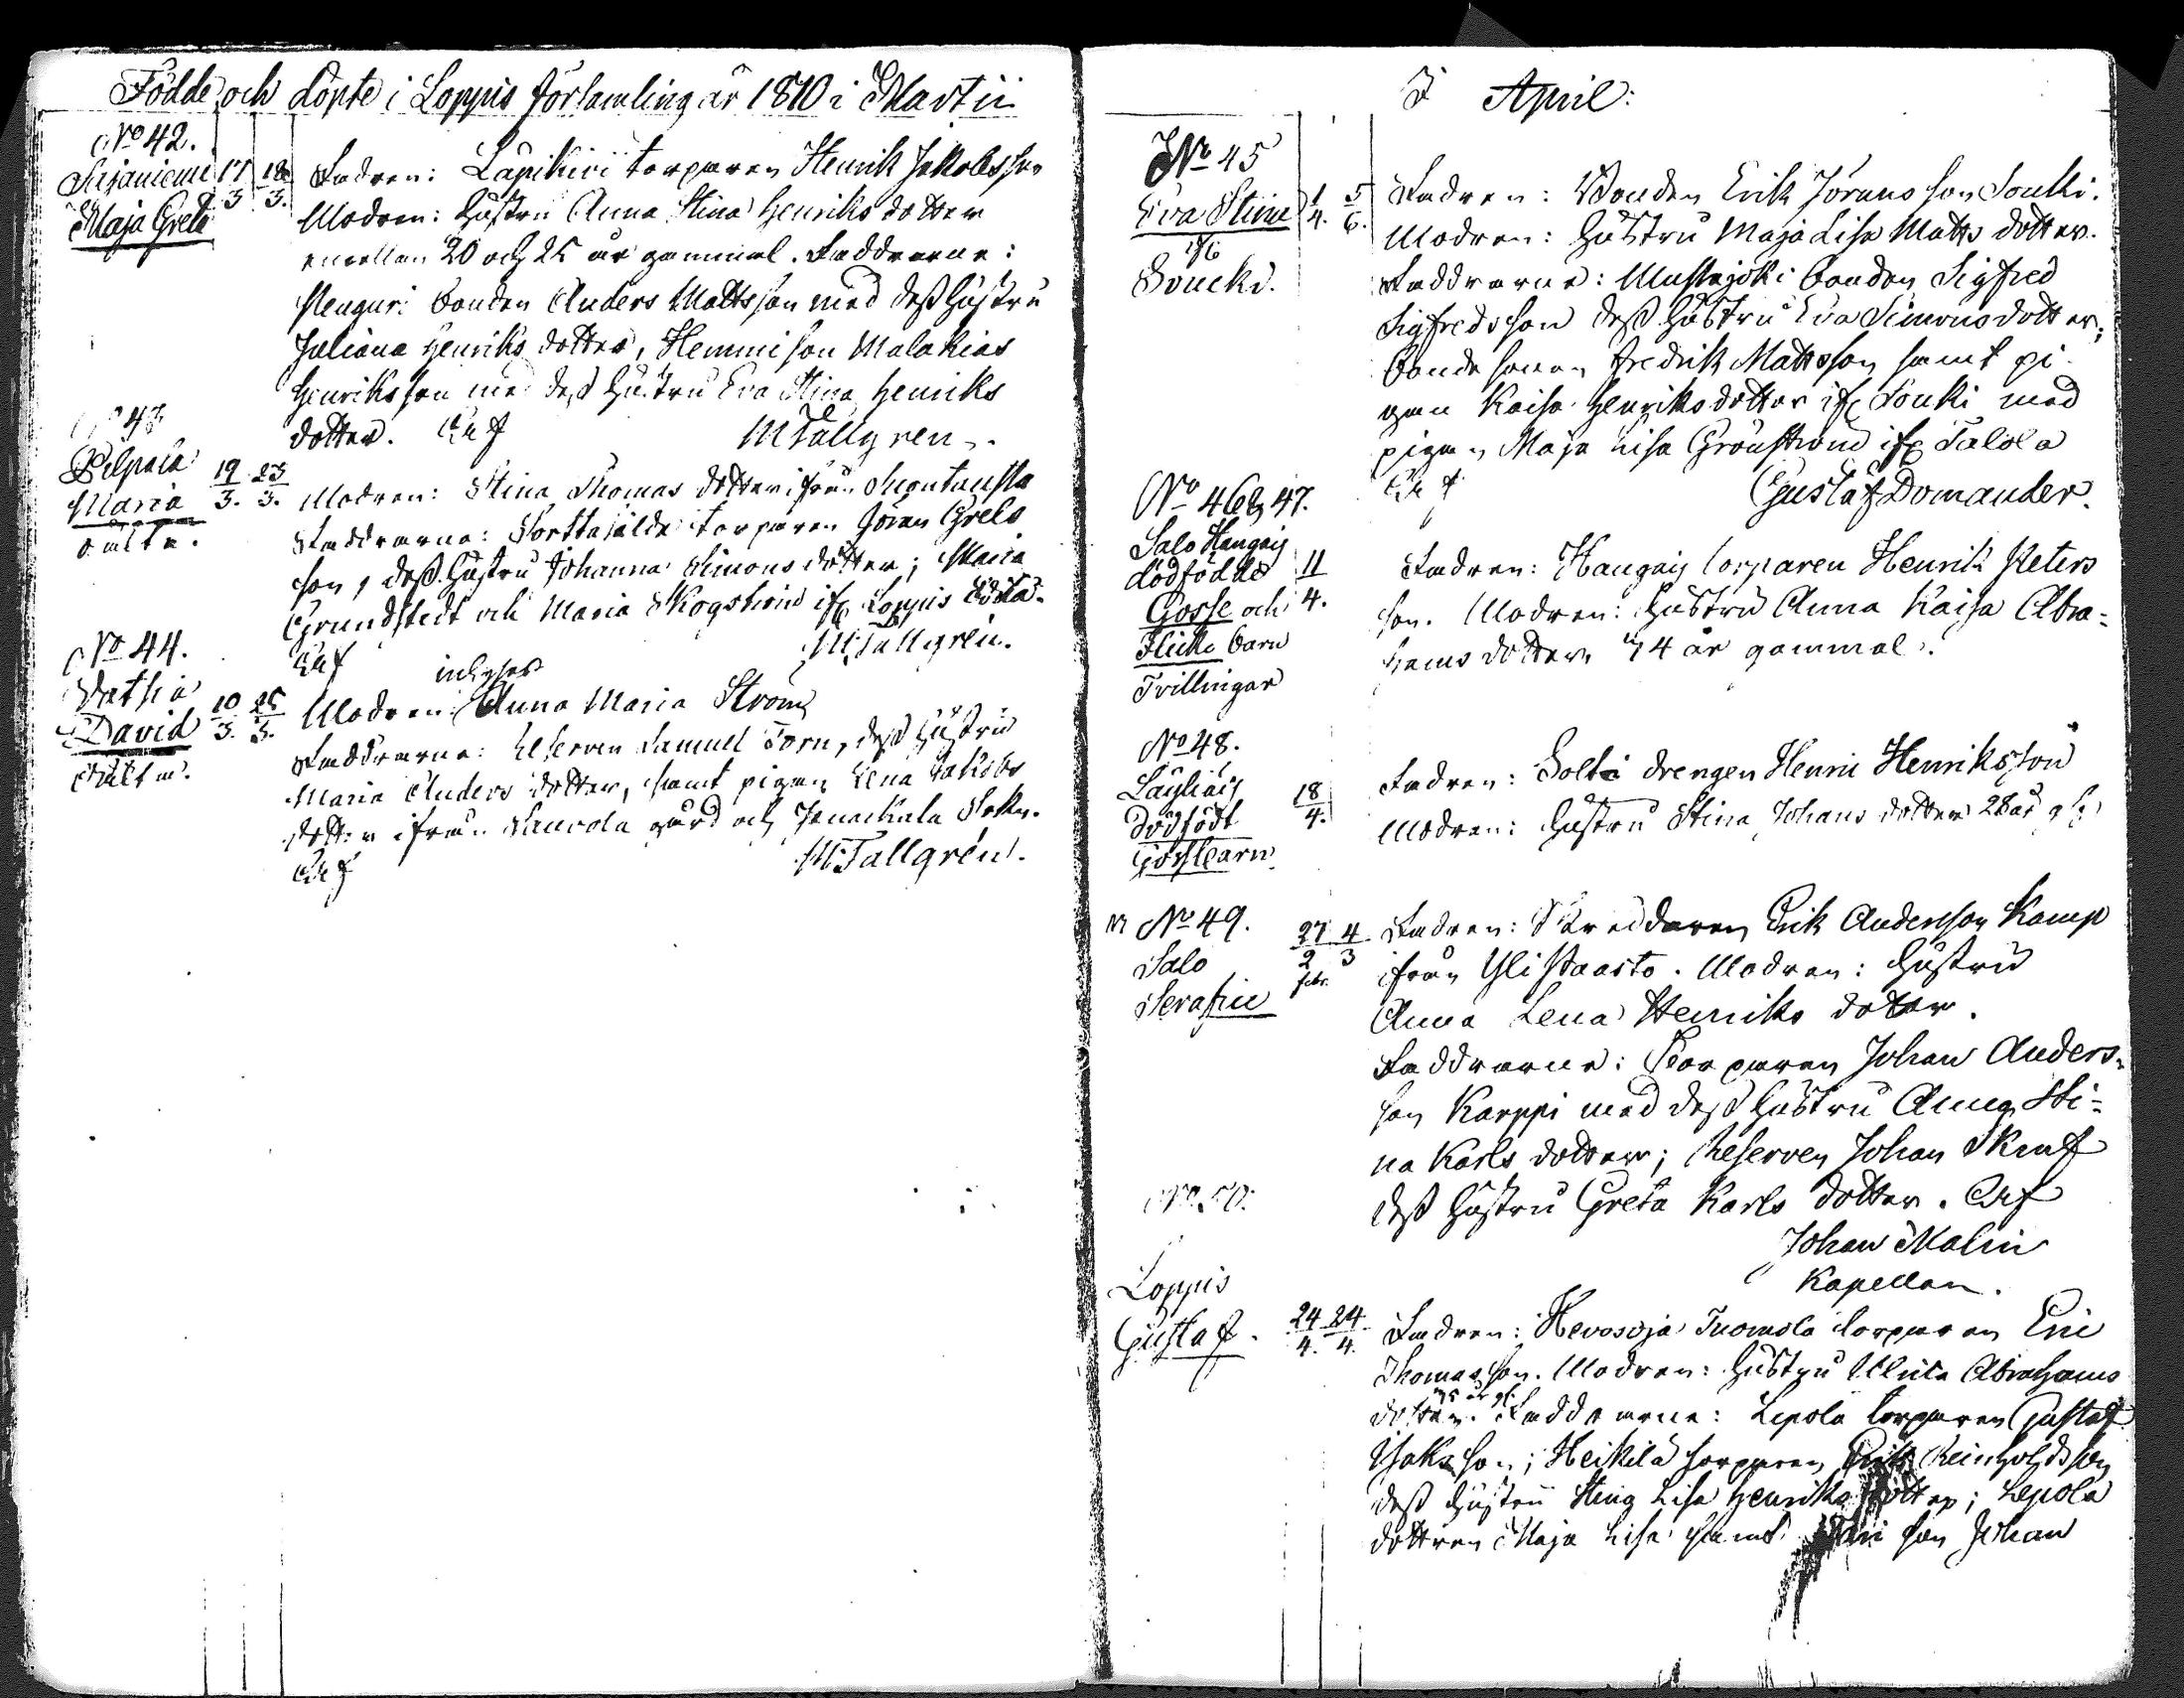 Födde och döpte i Loppis församling år 1810 i Martii
No 42.
Sajaniemi 17/3 18/3.
Maja Greta
Fadren: Läpikivi torparen Henrik Jakobsson
Modren: hustru Anna Stina Henriks dotter
emellan 20 och 25 år gammal. Faddrarne:
bonden Anders Mattsson med dess hustru
Juliana Henriks dotter, Hemmi son Malakias
Henriksson med dess hustru Eva Stina Henriks
dotter.
M Tallgren.
No 43
Pilpala
Maria 19/3. 23/3.
oäkta.
Modren: Stina Thomas dotter ifrån
Faddrarne: torparen Göran Grels
son, dess hustru Johanna Simons dotter; Maria
Grundstedt och Maria Skogström ifr Loppis
M Tallgrén.
No 44.
David 10/3. 25/3.
oäkta.
inhyses
Modren: Anna Maria Ström
Faddrarne: Reserven Samuel Torn, dess hustru
Maria Anders dotter, samt pigan Lena Jakobs
dotter ifrån Saurola gård och Janackala Sokn.
M: Tallgrén.
I April:
No 45
Eva Stina 1/4. 5/6.
ifr
Soucki.
Fadren: Bonden Erik Jörans son Souki.
Modren: hustru Maja Lisa Matts dotter.
Faddrarne: Mustajoki bonden Sigfred
Sigfredsson dess hustru Eva Simonsdotter;
bonde sonen Fredrik Mattsson samt pi
gan Kaisa Henriksdotter ifr Souki med
pigan Maja Lisa Grönström ifr Talola
Gustaf Domander.
No 46 & 47.
Salo Haugaij
dödfödde 11/4.
Gosse och
Flicke barn
Tvillingar
Fadren: Haugaij torparen Henrik Peters
son. Modren: hustru Anna Kaisa Abra=
hams dotter 44 år gammal.
No 48.
Läyliäis
Dödfödt 18/4.
Gossebarn
Fadren: drengen Henric Henriksson
Modren: hustru Stina Johans dotter 28 år gl:
No 49.
Salo
Serafia
27/2 4/3
febr.
Fadren: Skreddaren Erik Andersson Kamp
ifrån Ylistaasto. Modren: hustru
Anna Lena Henriks dotter.
Faddrarne: Torparen Johan Anders=
son Karppi med dess hustru Anna Sti=
na Karls dotter; Reserven Johan Skruf
dess hustru Greta Karls dotter.
Johan Malin
Kapellan.
No 50.
Loppis
Gustaf. 24/4. 24/4.
Fadren: Hevosoja Tuomola torparen Eric
Thomasson. Modren: hustru Ulrica Abrahams
dotter. Faddrarne: Lepola torparen Gustaf
Isaksson; Heikilä torparen Erik Reinholdsson
dess hustru Stina Lisa Henriksdotter; Lepola
dottren Maja Lisa samt son Johan